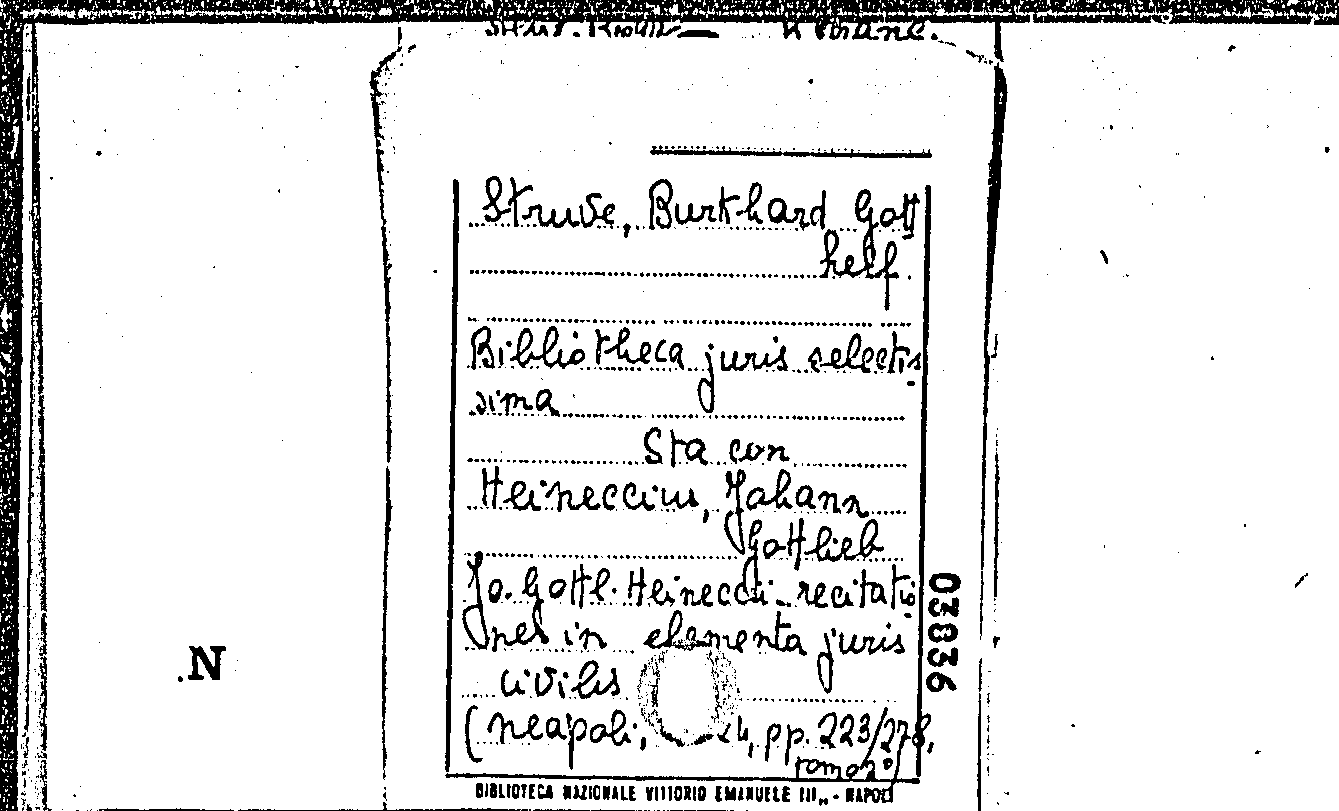 Struve, Burkhard Gott
helf.
Bibliotheca juris selectis
sima
Sta con
Heineccius, Johann
Gottlieb
Jo. Gottl. Heineccii recitatio
nes in elementa juris
civilis
(Neapoli, 4, pp. 223/278,
tomo 2°)
BIBLIOTECA NAZIONALE VITTORIO EMANUELE III,, - NAPOLI
03836
.N